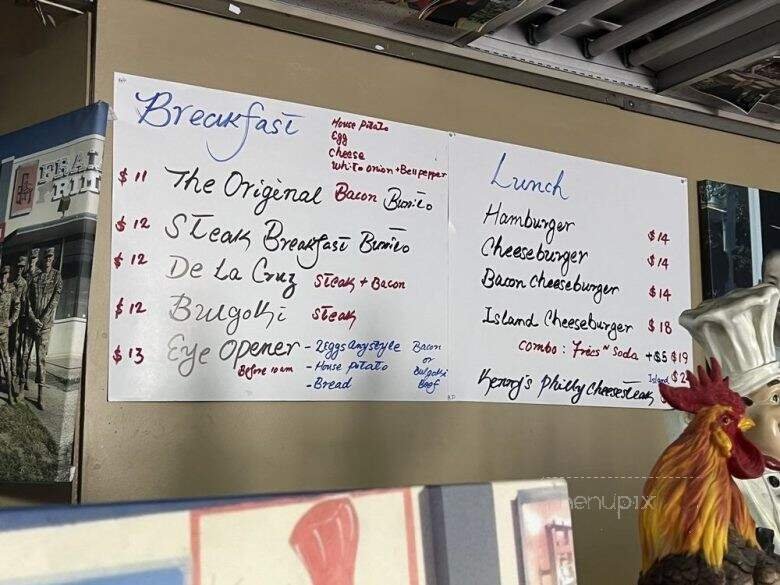 Breakfast
House Potato
Egg
Cheese
White onion + Bell pepper
$11 The Original Bacon Burrito
$12 Steak Breakfast Burrito
$12 De La Cruz Steak + Bacon
$12 Bulgoki Steak
$13 Eye Opener - 2 Eggs any style Bacon
Before 10 am - House Potato or Bulgoki
- Bread Beef
Lunch
Hamburger $14
Cheeseburger $14
Bacon Cheeseburger $14
Island Cheeseburger $18
Combo: Fries n Soda +$5 $19
Kenny's Philly Cheesesteak Island $2
menupix